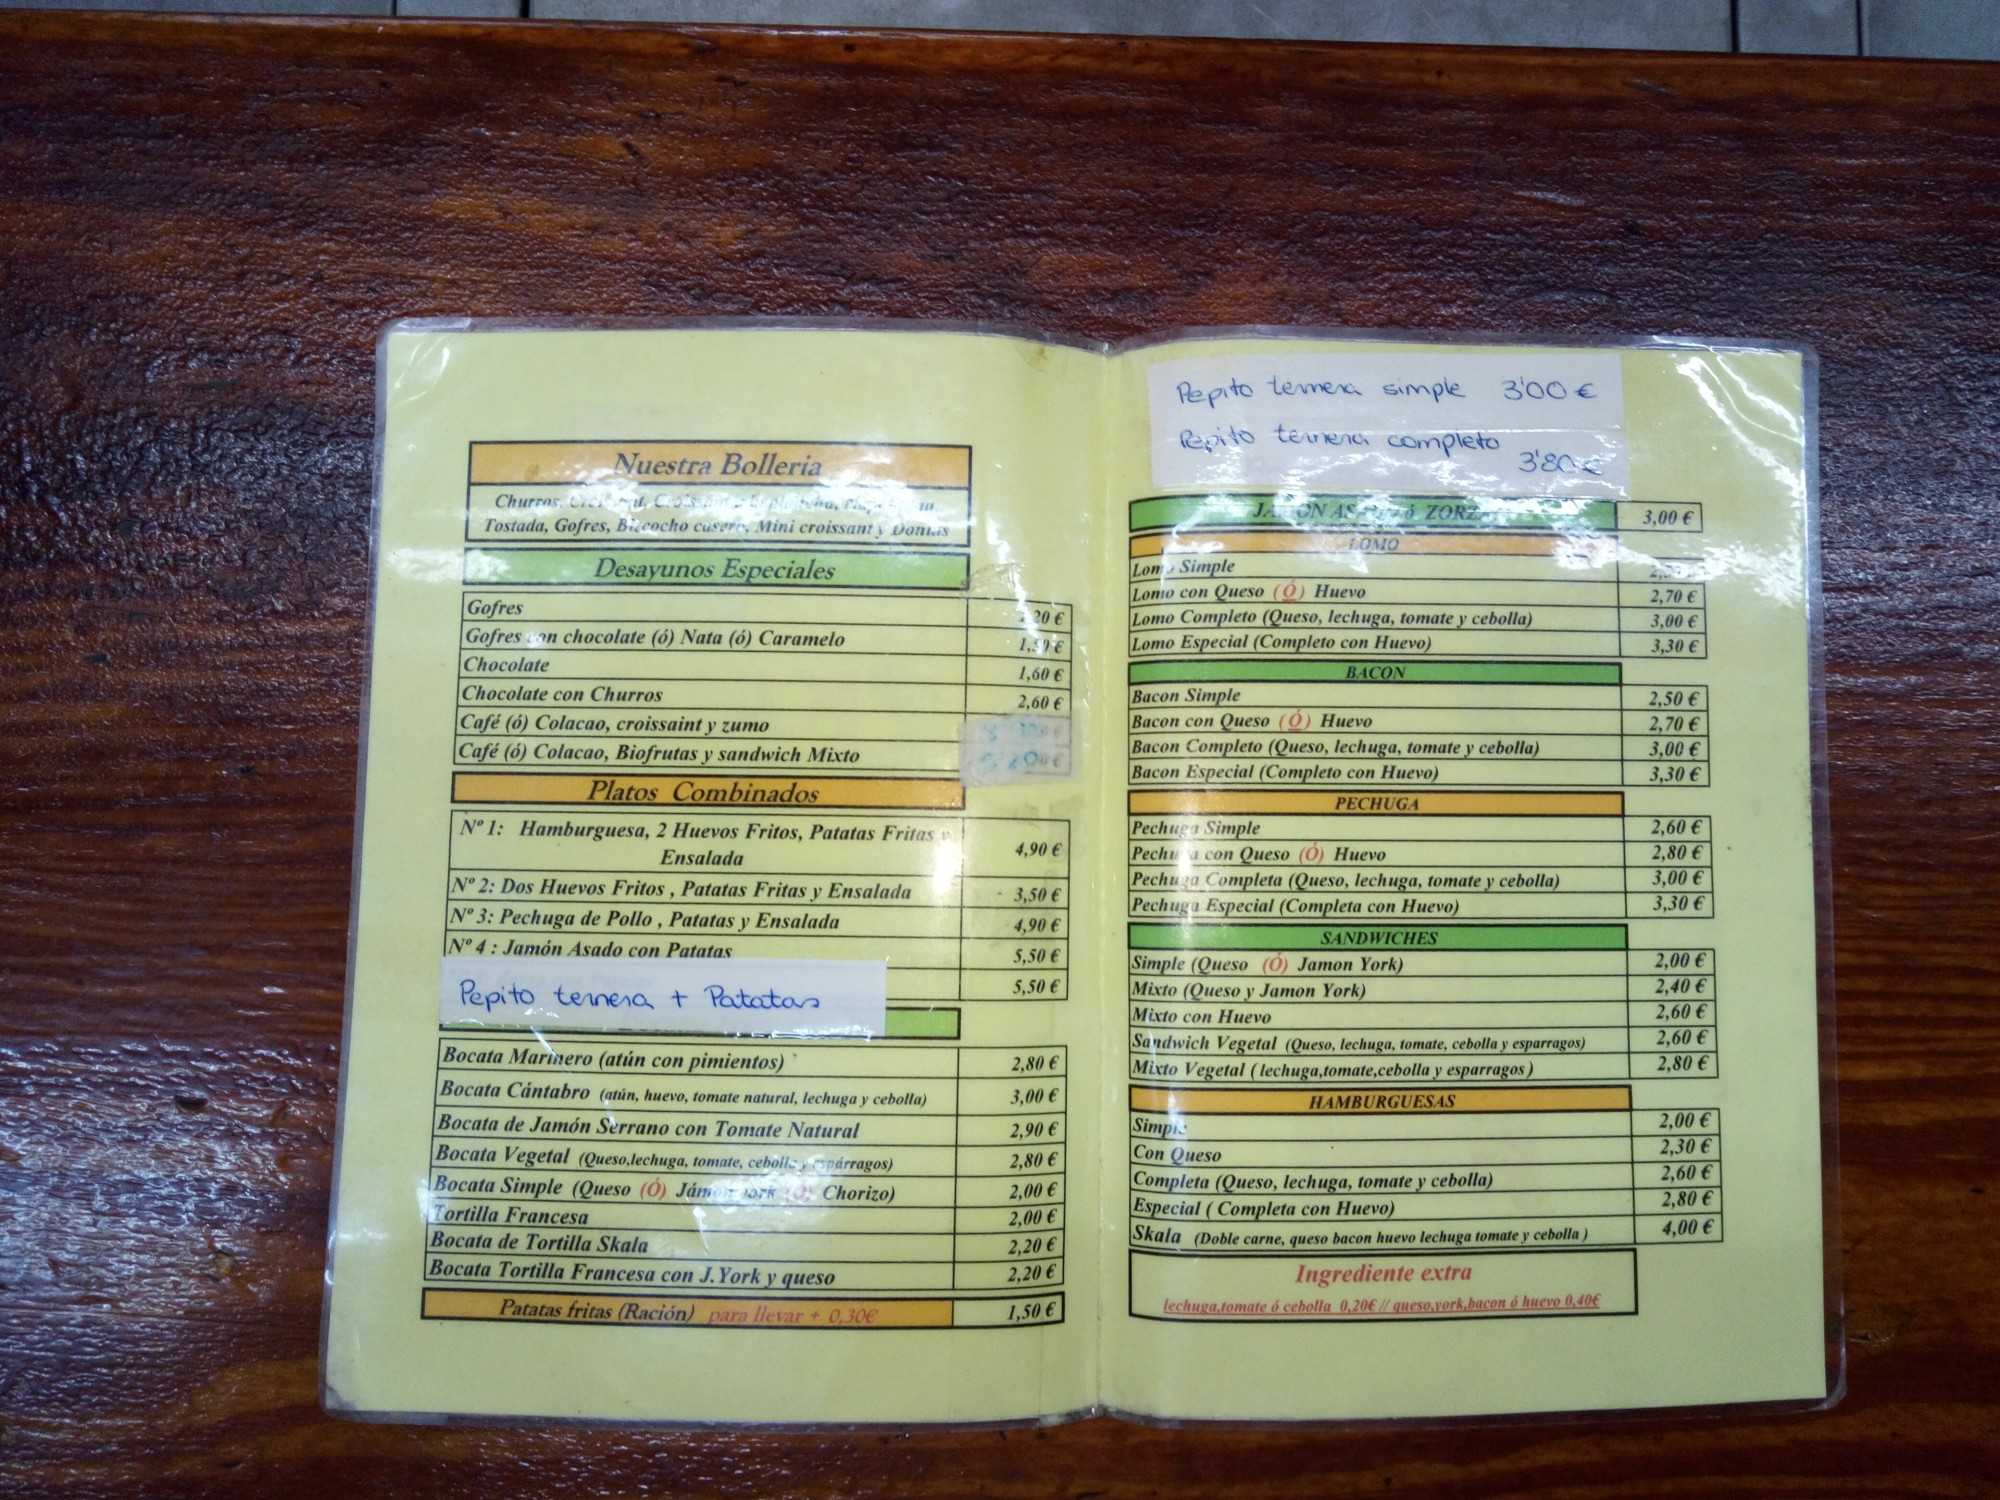 Nuestra Bolleria
Churros,
Tostada, Gofres, Bizcocho casero, Mini croissant y Donuts
Desayunos Especiales
Gofres
Gofres con chocolate (ó) Nata (ó) Caramelo 1,50 €
Chocolate 1,60 €
Chocolate con Churros 2,60 €
Café (ó) Colacao, croissaint y zumo
Café (ó) Colacao, Biofrutas y sandwich Mixto
Platos Combinados
Nº 1: Hamburguesa, 2 Huevos Fritos, Patatas Fritas y
Ensalada 4,90 €
Nº 2: Dos Huevos Fritos , Patatas Fritas y Ensalada 3,50 €
Nº 3: Pechuga de Pollo , Patatas y Ensalada 4,90 €
Nº 4 : Jamón Asado con Patatas 5,50 €
Pepito ternera + Patatas 5,50 €
Bocata Marinero (atún con pimientos) 2,80 €
Bocata Cántabro (atún, huevo, tomate natural, lechuga y cebolla) 3,00 €
Bocata de Jamón Serrano con Tomate Natural 2,90 €
Bocata Vegetal (Queso,lechuga, tomate, cebolla y espárragos) 2,80 €
Bocata Simple (Queso (Ó) Jámon york (Ó) Chorizo) 2,00 €
Tortilla Francesa 2,00 €
Bocata de Tortilla Skala 2,20 €
Bocata Tortilla Francesa con J.York y queso 2,20 €
Patatas fritas (Ración) para llevar + 0,30€ 1,50 €
Pepito ternera simple 3'00 €
Pepito ternera completo
3'80 €
JAMON ASADO ó ZORZA 3,00 €
LOMO
Lomo Simple
Lomo con Queso (Ó) Huevo 2,70 €
Lomo Completo (Queso, lechuga, tomate y cebolla) 3,00 €
Lomo Especial (Completo con Huevo) 3,30 €
BACON
Bacon Simple 2,50 €
Bacon con Queso (Ó) Huevo 2,70 €
Bacon Completo (Queso, lechuga, tomate y cebolla) 3,00 €
Bacon Especial (Completo con Huevo) 3,30 €
PECHUGA
Pechuga Simple 2,60 €
Pechuga con Queso (Ó) Huevo 2,80 €
Pechuga Completa (Queso, lechuga, tomate y cebolla) 3,00 €
Pechuga Especial (Completa con Huevo) 3,30 €
SANDWICHES
Simple (Queso (Ó) Jamon York) 2,00 €
Mixto (Queso y Jamon York) 2,40 €
Mixto con Huevo 2,60 €
Sandwich Vegetal (Queso, lechuga, tomate, cebolla y esparragos) 2,60 €
Mixto Vegetal ( lechuga,tomate,cebolla y esparragos ) 2,80 €
HAMBURGUESAS
Simple 2,00 €
Con Queso 2,30 €
Completa (Queso, lechuga, tomate y cebolla) 2,60 €
Especial ( Completa con Huevo) 2,80 €
Skala (Doble carne, queso bacon huevo lechuga tomate y cebolla ) 4,00 €
Ingrediente extra
lechuga,tomate ó cebolla 0,20€ // queso,york,bacon ó huevo 0,40€